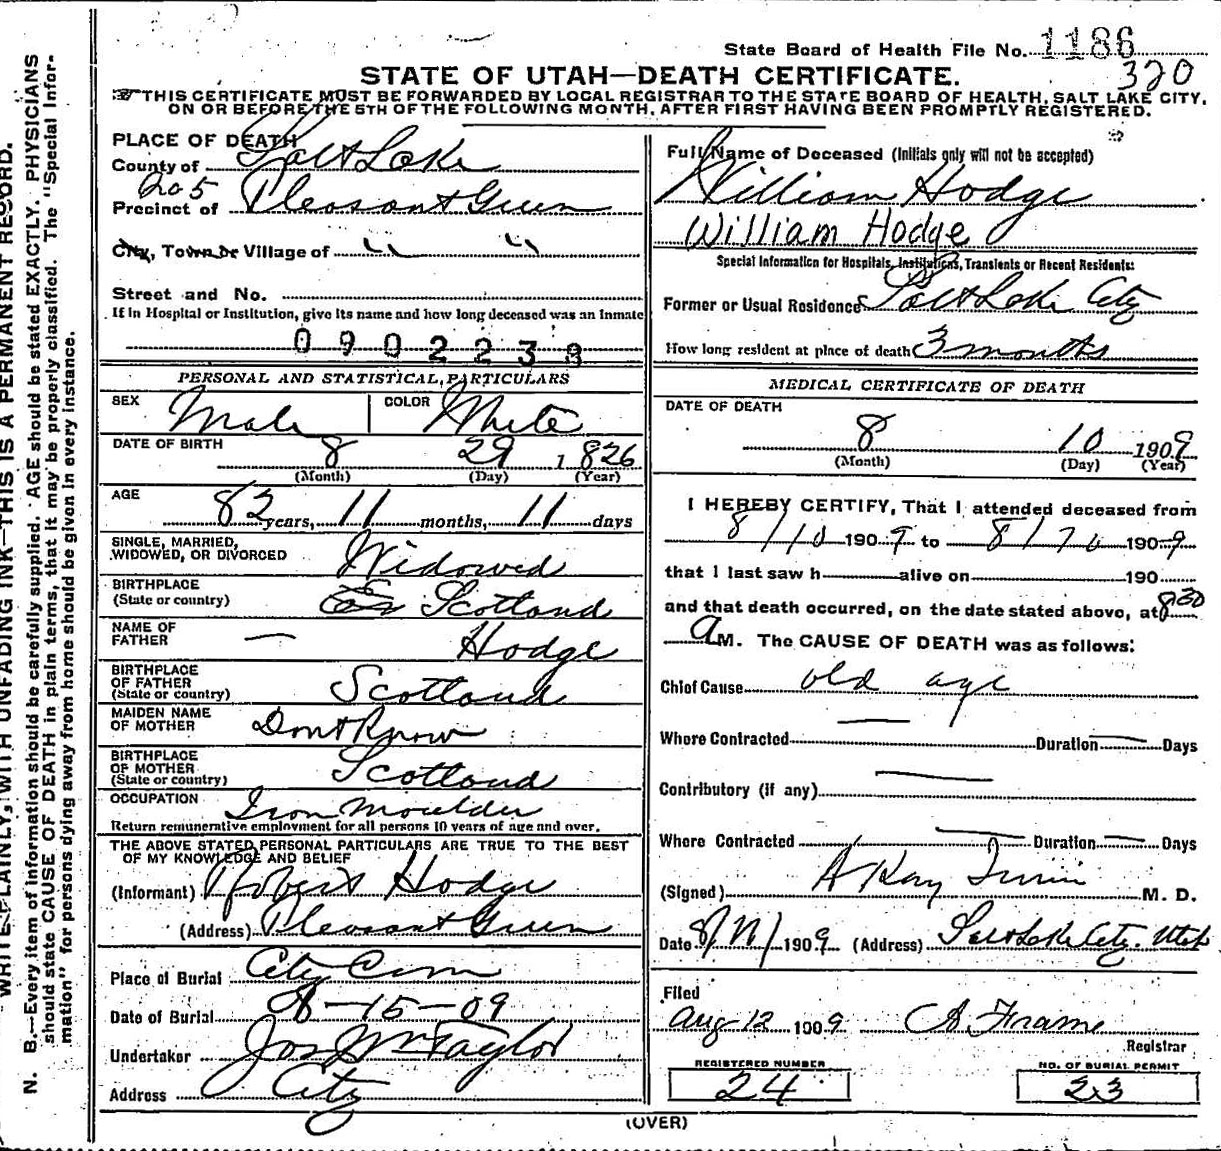 WRITE PLAINLY, WITH UNFADING INK—THIS IS A PERMANENT RECORD.
N. B.—Every item of information should be carefully supplied. AGE should be stated EXACTLY. PHYSICIANS
should state CAUSE OF DEATH in plain terms, that it may be properly classified. The "Special Infor-
mation" for persons dying away from home should be given in every instance.
State Board of Health File No. 1186
320
STATE OF UTAH—DEATH CERTIFICATE.
THIS CERTIFICATE MUST BE FORWARDED BY LOCAL REGISTRAR TO THE STATE BOARD OF HEALTH, SALT LAKE CITY,
ON OR BEFORE THE 5TH OF THE FOLLOWING MONTH, AFTER FIRST HAVING BEEN PROMPTLY REGISTERED.
PLACE OF DEATH
County of Salt Lake
205
Precinct of Pleasant Green
City, Town or Village of " "
Street and No.
If in Hospital or Institution, give its name and how long deceased was an inmate
0902238
PERSONAL AND STATISTICAL PARTICULARS
SEX Male COLOR White
DATE OF BIRTH 8 29 1826
(Month) (Day) (Year)
AGE 82 years, 11 months, 11 days
SINGLE, MARRIED,
WIDOWED, OR DIVORCED Widowed
BIRTHPLACE
(State or country) Scotland
NAME OF
FATHER — Hodge
BIRTHPLACE
OF FATHER
(State or country) Scotland
MAIDEN NAME
OF MOTHER Dont Know
BIRTHPLACE
OF MOTHER
(State or country) Scotland
OCCUPATION Iron Moulder
Return remunerative employment for all persons 10 years of age and over.
THE ABOVE STATED PERSONAL PARTICULARS ARE TRUE TO THE BEST
OF MY KNOWLEDGE AND BELIEF
(Informant) Robert Hodge
(Address) Pleasant Green
Place of Burial City Cem
Date of Burial 8-15-09
Undertaker Jos Wm Taylor
Address City
Full Name of Deceased (Initials only will not be accepted)
William Hodge
William Hodge
Special Information for Hospitals, Institutions, Transients or Recent Residents:
Former or Usual Residence Salt Lake City
How long resident at place of death 3 months
MEDICAL CERTIFICATE OF DEATH
DATE OF DEATH
8 10 1909
(Month) (Day) (Year)
I HEREBY CERTIFY, That I attended deceased from
8/10 1909 to 8/10 1909
that I last saw h alive on 190
and that death occurred, on the date stated above, at 8 30
A M. The CAUSE OF DEATH was as follows:
Chief Cause old age
Where Contracted — Duration — Days
Contributory (if any) —
Where Contracted — Duration — Days
(Signed) A Kay M. D.
Date 8/11/1909 (Address) Salt Lake City. Utah
Filed
Aug 12 1909 A. Frame
Registrar
REGISTERED NUMBER
24
NO. OF BURIAL PERMIT
23
(OVER)